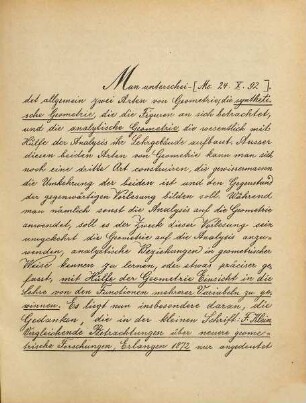 Man unterschei-[Mo. 24. X. 92.]
det allgemein zwei Arten von Geometrie, die syntheti-
sche Geometrie, die die Figuren an sich betrachtet,
und die analytische Geometrie die wesentlich mit
Hülfe der Analysis ihr Lehrgebäude aufbaut. Ausser
diesen beiden Arten von Geometrie kann man sich
noch eine dritte Art construiren, die gewissermassen
die Umkehrung der beiden ist und den Gegenstand
der gegenwärtigen Vorlesung bilden soll. Während
man nämlich sonst die Analysis auf die Geometrie
anwendet, soll es der Zweck dieser Vorlesung sein
umgekehrt die Geometrie auf die Analysis anzu-
wenden, analytische Beziehungen in geometrischer
Weise kennen zu lernen, oder etwas präciser ge-
fasst, mit Hülfe der Geometrie Einsicht in die
Lehre von den Functionen mehrerer Variabeln zu ge-
winnen. Es liegt nun insbesondere daran, die
Gedanken, die in der kleinen Schrift: F. Klein
Vergleichende Betrachtungen über neuere geome-
trische Forschungen, Erlangen 1872 nur angedeutet